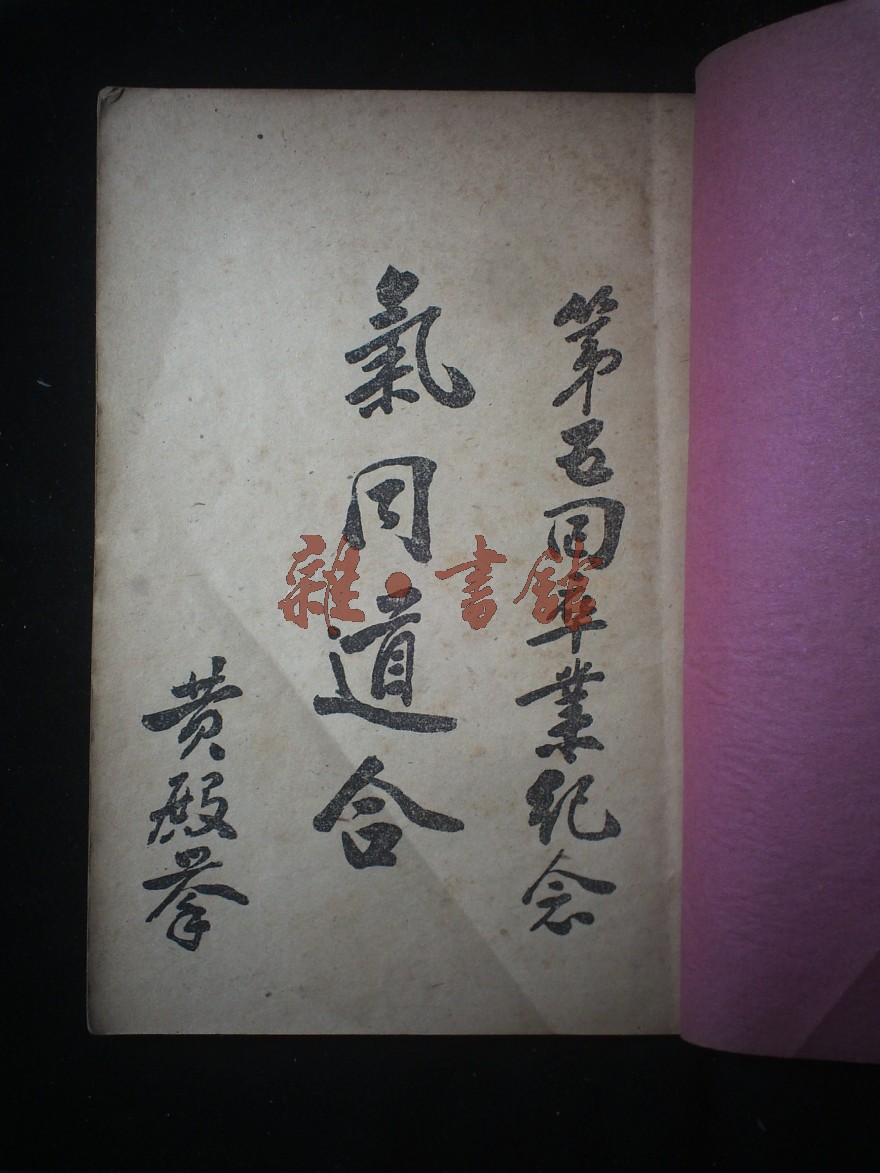 第五回卒業紀念
氣同道合
黄殿拳
雜·書館